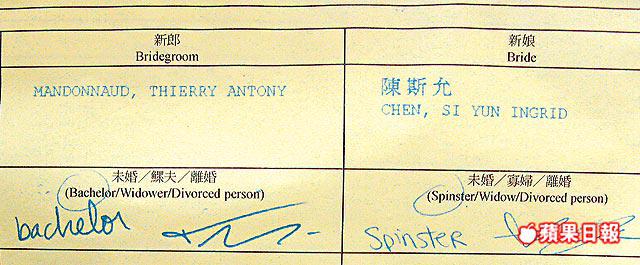 新郎
Bridegroom
新娘
Bride
MANDONNAUD, THIERRY ANTONY
陳斯允
CHEN, SI YUN INGRID
未婚／鰥夫／離婚
(Bachelor/Widower/Divorced person)
未婚／寡婦／離婚
(Spinster/Widow/Divorced person)
bachelor
Spinster
蘋果日報